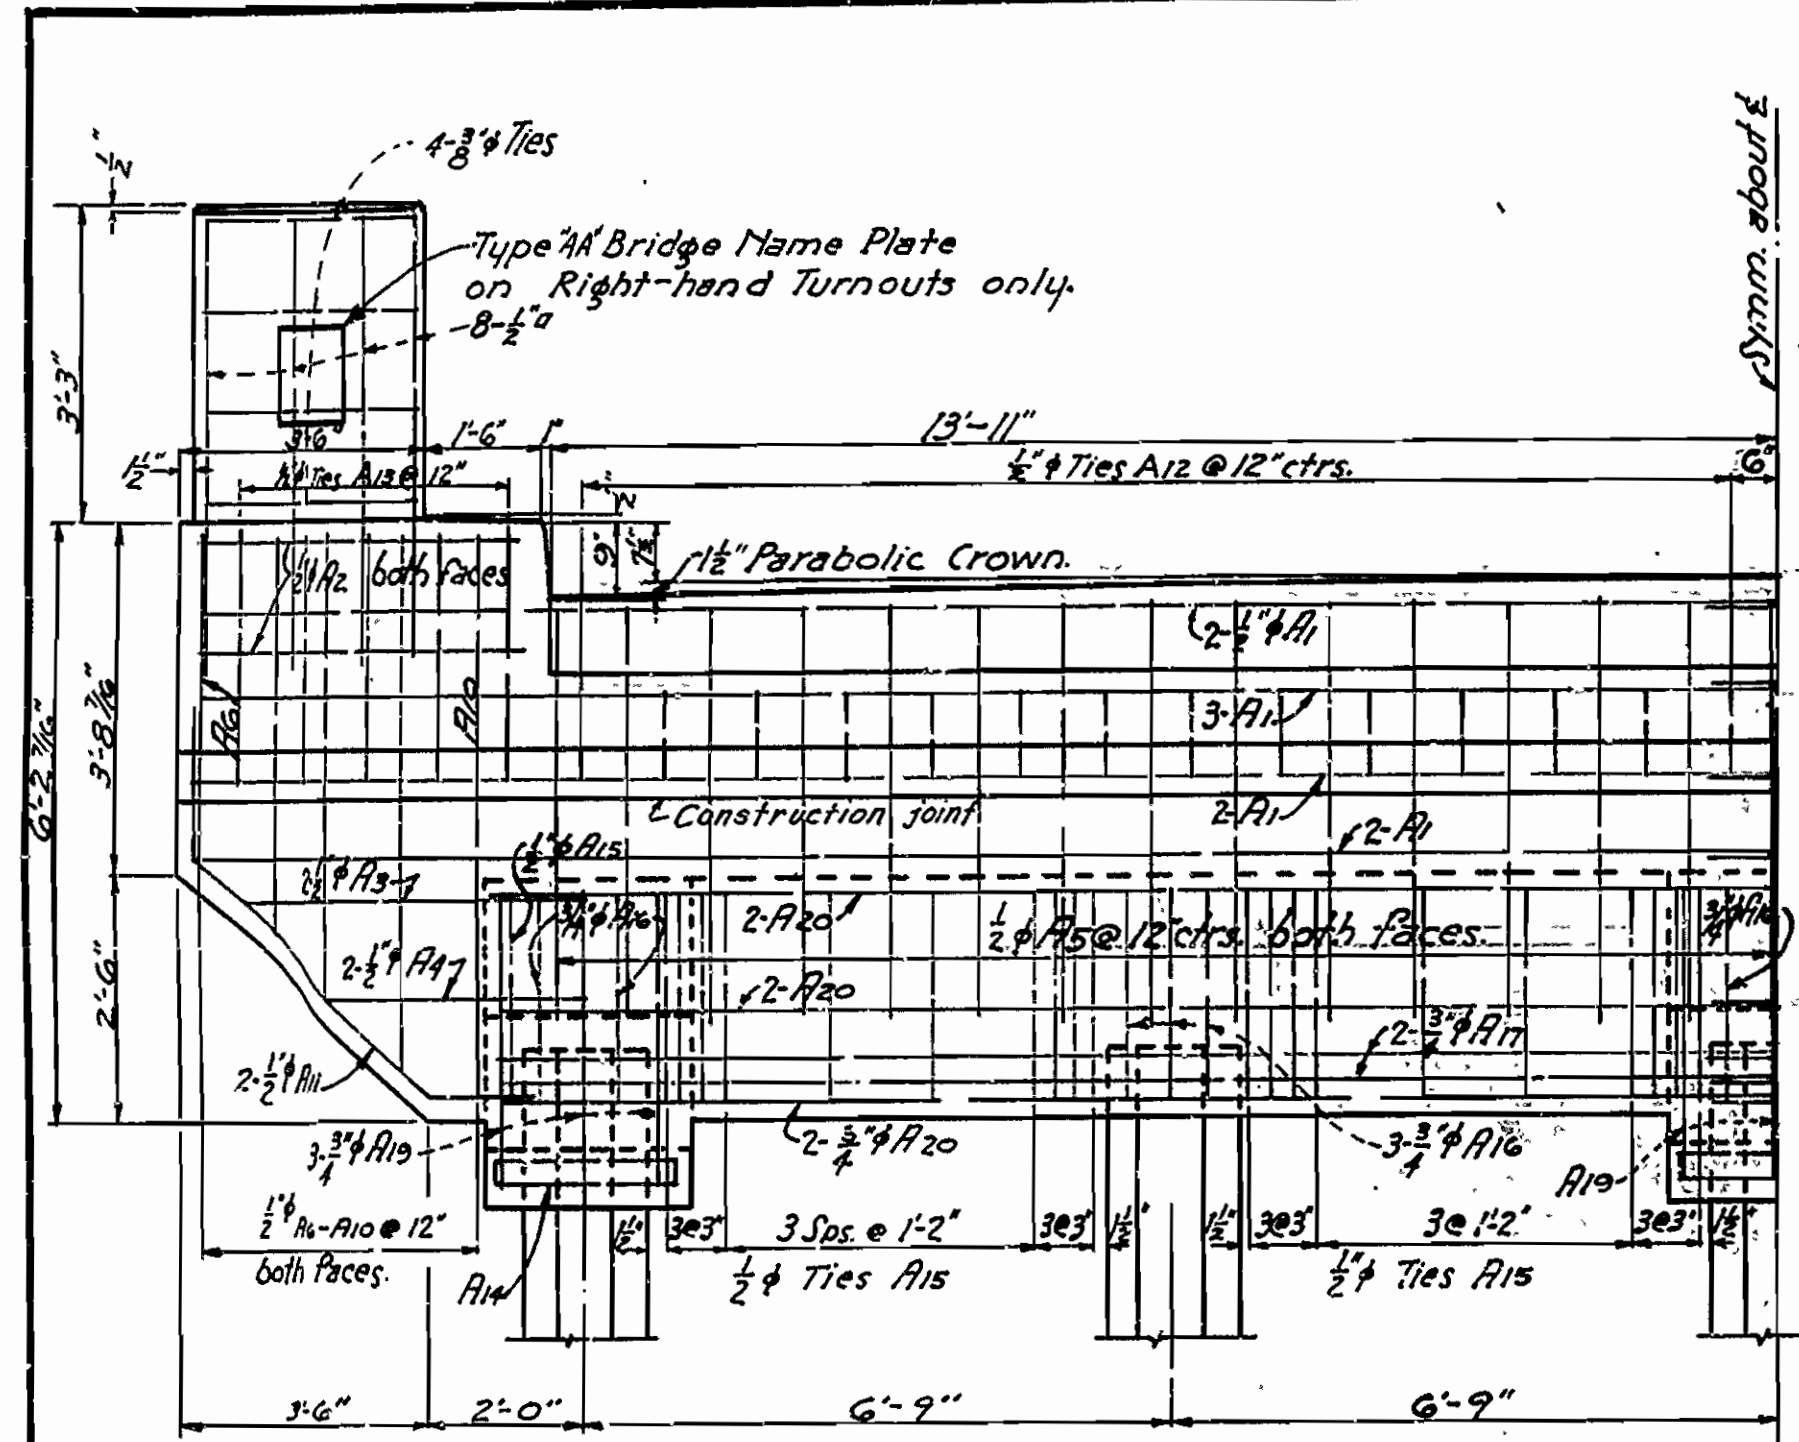 1/2"
4-3/8"φ Ties
Type "AA" Bridge Name Plate
on Right-hand Turnouts only.
8-1/2"□
3'-3"
Symm. about ℄
3'-6"
1'-6"
1"
13'-11"
1 1/2"
1/2"φ Ties A13 @ 12"
1/2"φ Ties A12 @ 12" ctrs.
6"
1/2"
9"
7 1/2"
1 1/2" Parabolic Crown.
1/2"φ A2 both faces
2-1/2"φ A1
6'-2 7/16"
3'-8 7/16"
A6
A10
3-A1
Construction joint
2-A1
2-A1
1/2"φ A15
2-1/2"φ A3
3/4"φ A16
2-A20
1/2"φ A5 @ 12" ctrs. both faces.
3/4"φ A16
2'-6"
2-1/2"φ A4
2-A20
2-3/4"φ A17
2-1/2"φ A11
3-3/4"φ A19
2-3/4"φ A20
3-3/4"φ A16
A19
1/2"φ A6-A10 @ 12"
both faces.
1 1/2"
3@3"
3 Sps. @ 1'-2"
3@3"
1 1/2"
1 1/2"
3@3"
3@ 1'-2"
3@3"
1 1/2"
A14
1/2 φ Ties A15
1/2"φ Ties A15
3'-6"
2'-0"
6'-9"
6'-9"